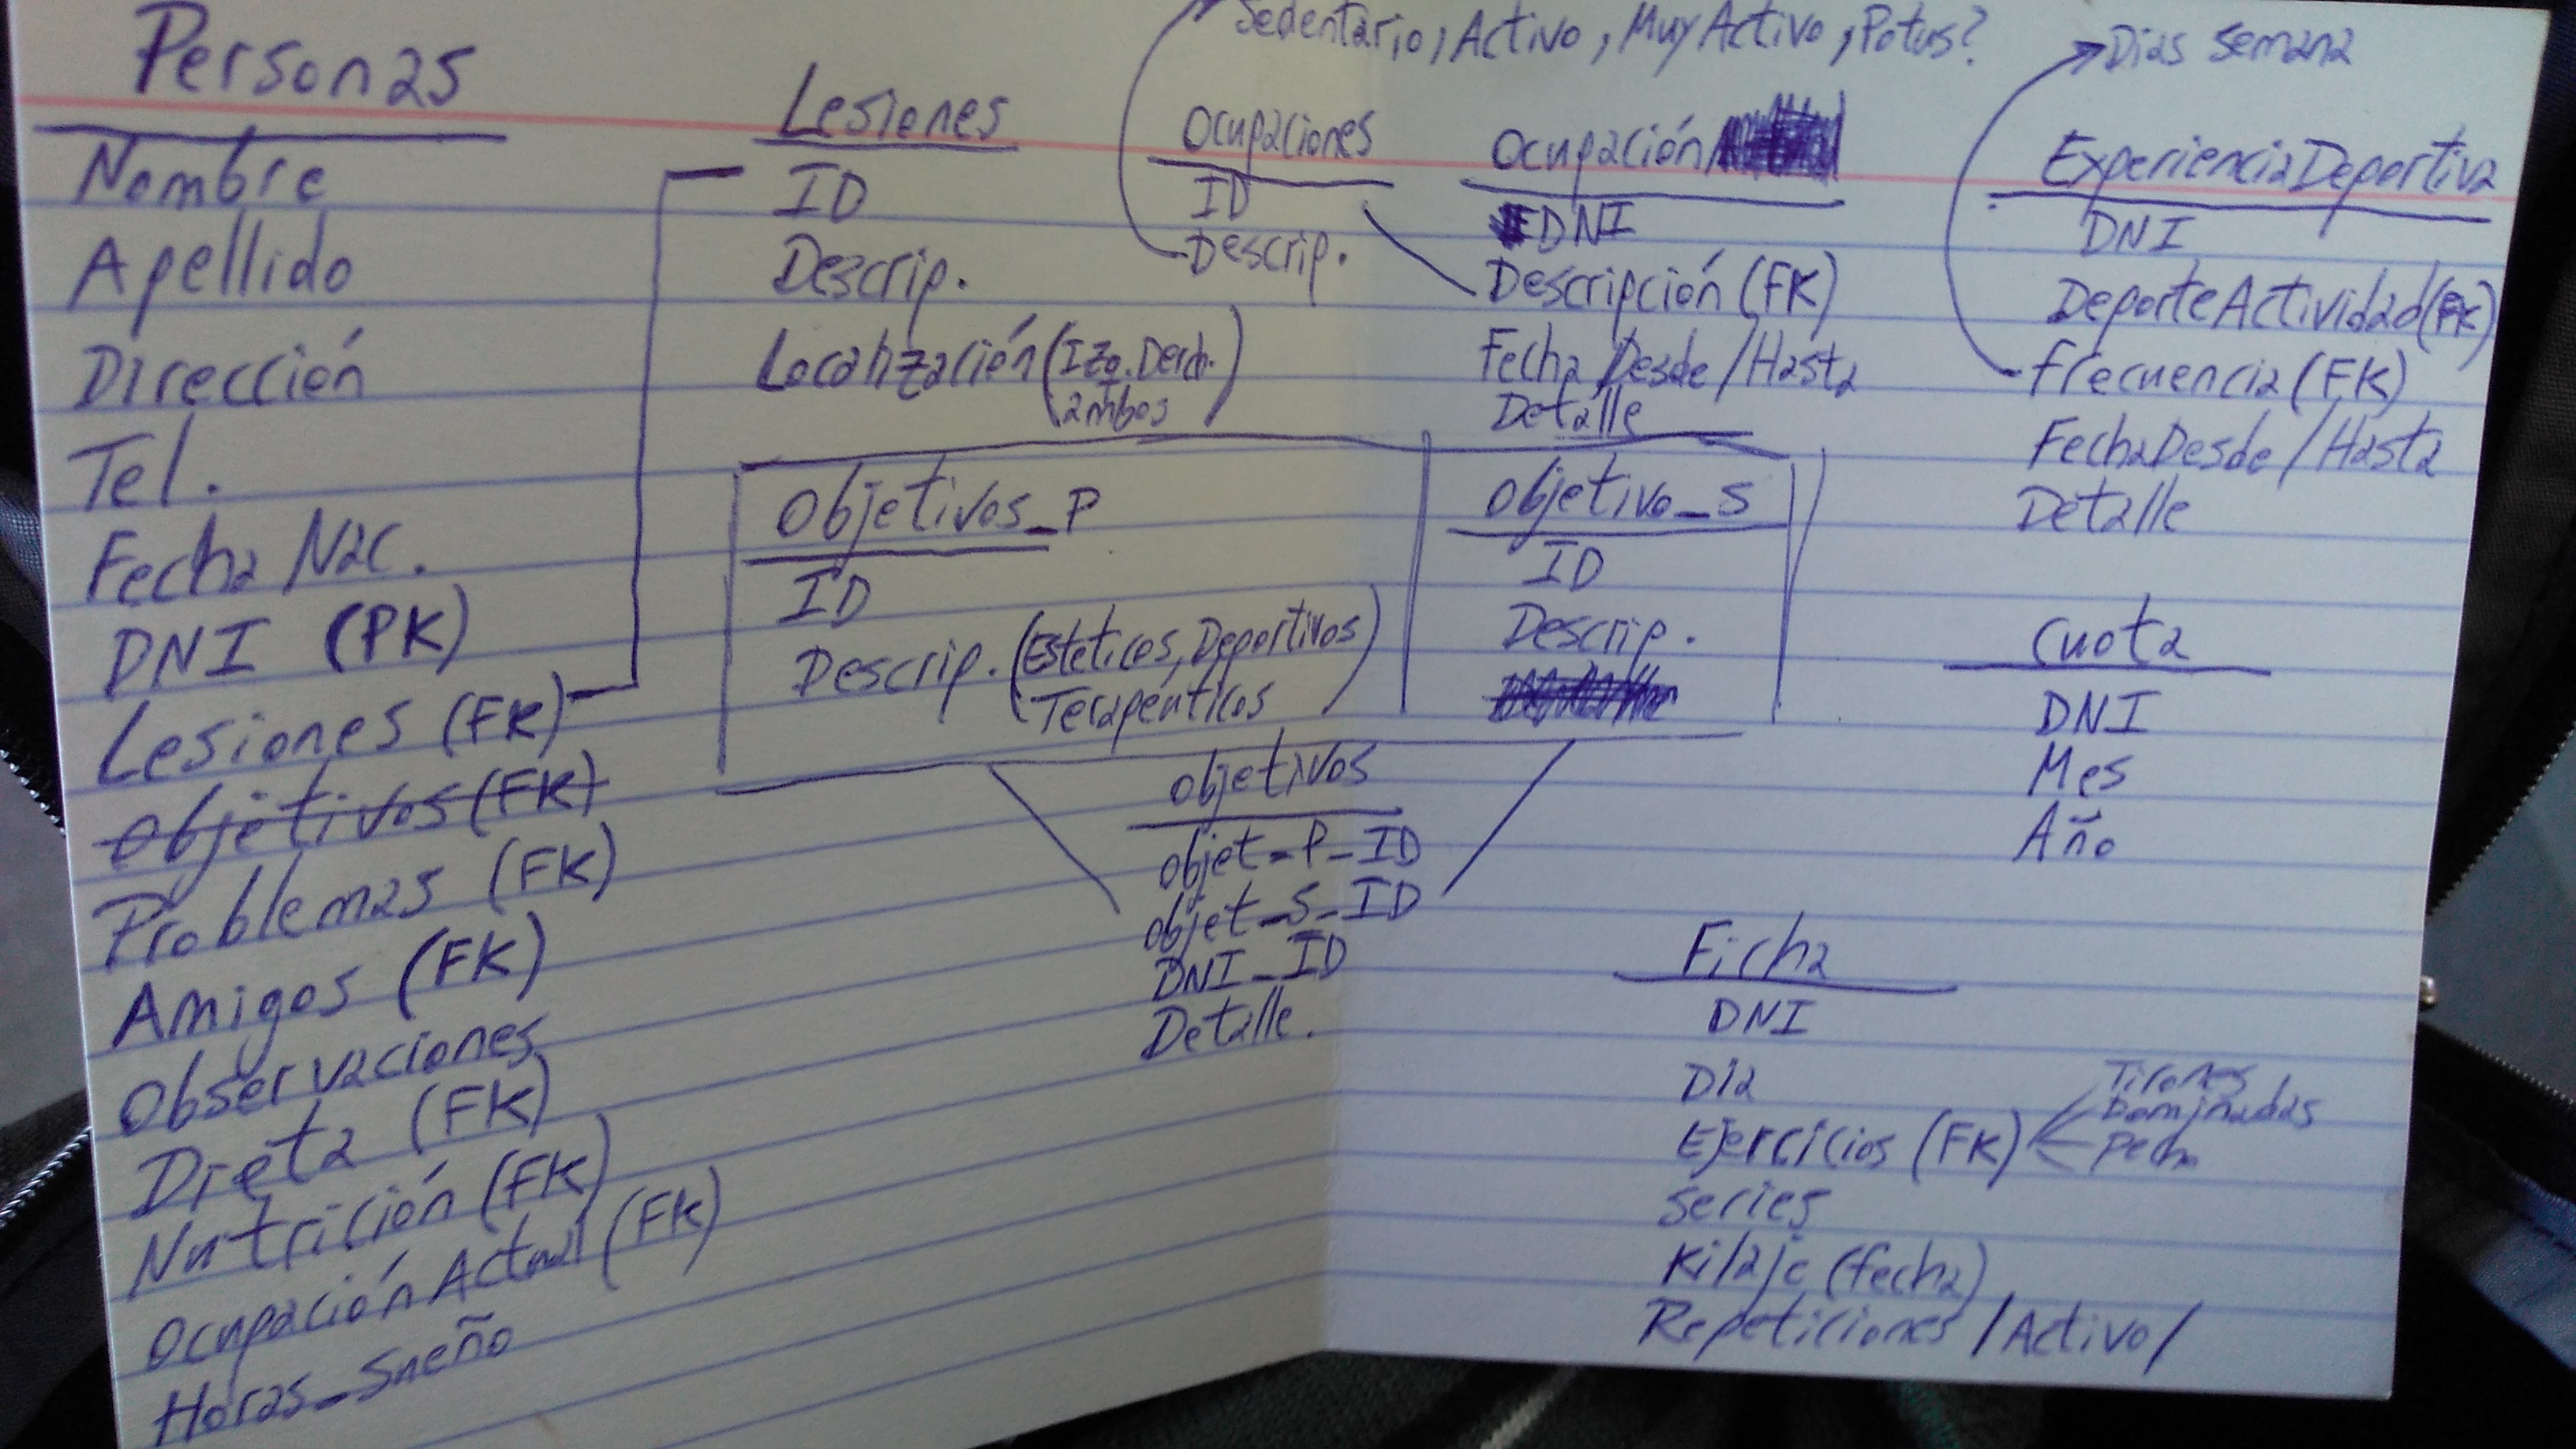 Personas
Nombre
Apellido
Dirección
Tel.
Fecha Nac.
DNI (PK)
Lesiones (FK)
Objetivos (FK)
Problemas (FK)
Amigos (FK)
Observaciones
Dieta (FK)
Nutrición (FK)
Ocupación Actual (FK)
Horas_Sueño
Lesiones
ID
Descrip.
Localización (Izq. Derch.
ambos)
Sedentario, Activo, Muy Activo, Potus?
Ocupaciones
ID
Descrip.
Ocupación
DNI
Descripción (FK)
Fecha Desde/Hasta
Detalle
Dias semana
ExperienciaDeportiva
DNI
DeporteActividad (FK)
frecuencia (FK)
FechaDesde/Hasta
Detalle
Objetivos_P
ID
Descrip. (Estéticos, Deportivos
Terapéuticos)
Objetivo_S
ID
Descrip.
Objetivos
objet_P_ID
objet_S_ID
DNI_ID
Detalle.
Cuota
DNI
Mes
Año
Ficha
DNI
Dia
Ejercicios (FK)
Tirones
Dominadas
Pecho
Series
Kilaje (fecha)
Repeticiones /Activo/